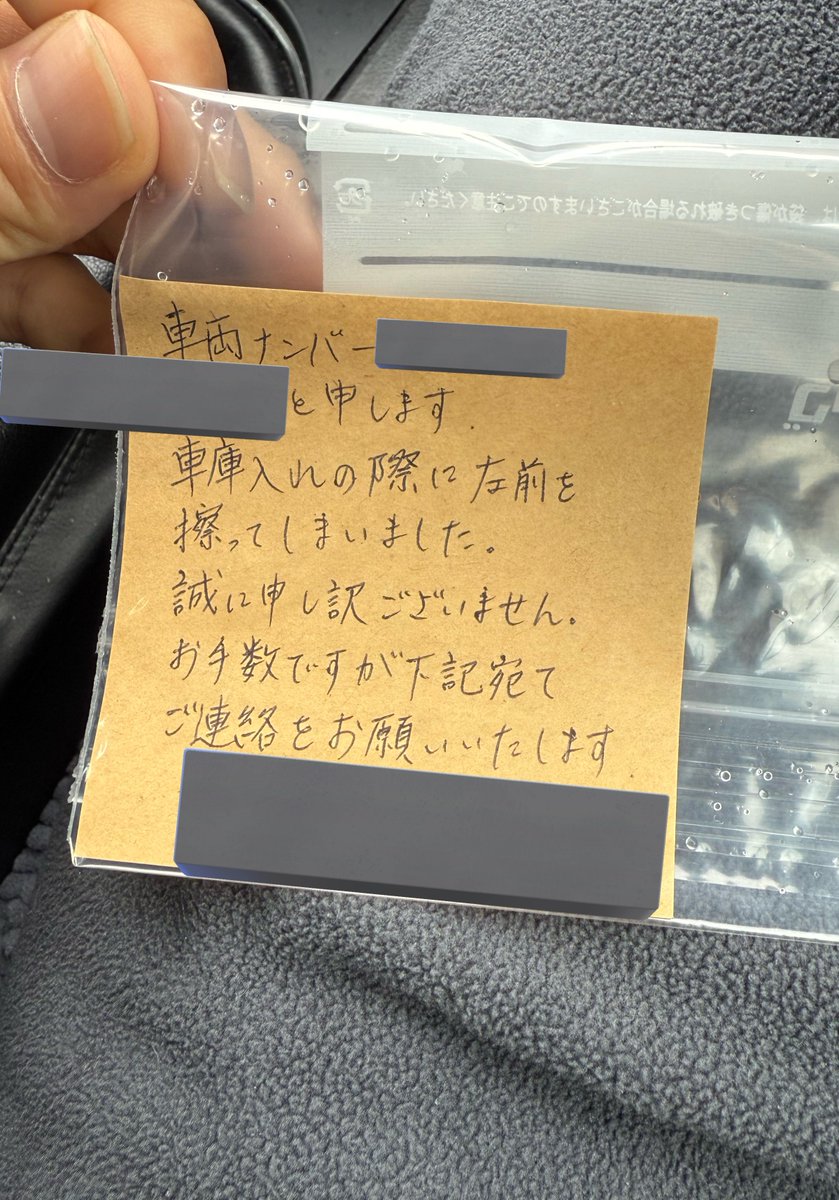 袋が傷つき破れる場合がございますのでご注意ください。
車両ナンバー
と申します.
車庫入れの際に左前を
擦ってしまいました。
誠に申し訳ございません。
お手数ですが下記宛て
ご連絡をお願いいたします.